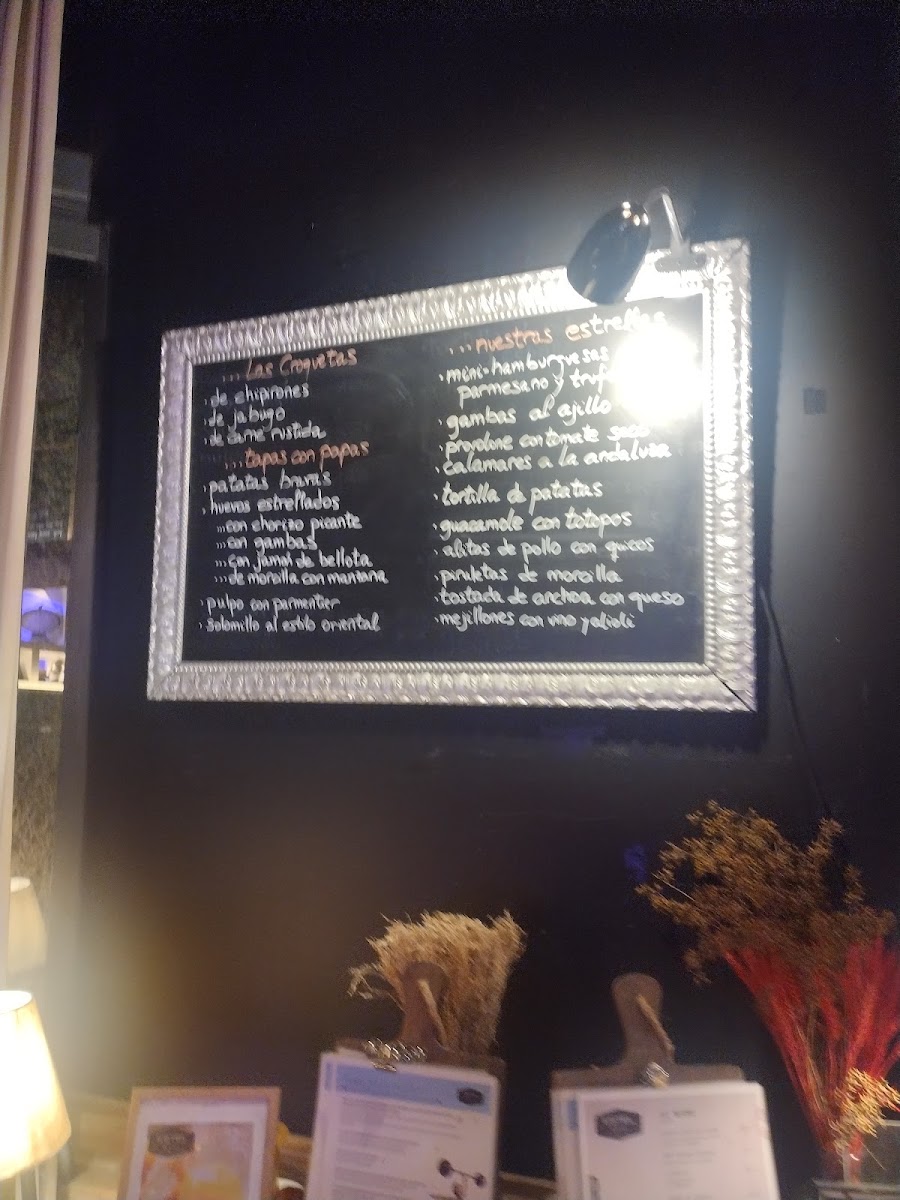 ...Las Croquetas
· de chiprones
· de jabugo
· de carne rustida
...tapas con papas
· patatas bravas
· huevos estrellados
...con chorizo picante
...con gambas
...con jamón de bellota
...de morcilla con manzana
· pulpo con parmentier
· solomillo al estilo oriental
...nuestras estrellas
· mini-hamburguesas
parmesano y
· gambas al ajillo
· provolone con tomate seco
· calamares a la andaluza
· tortilla de patatas
· guacamole con totopos
· alitas de pollo con quicos
· piruletas de morcilla
· tostada de anchoa con queso
· mejillones con vino y alioli